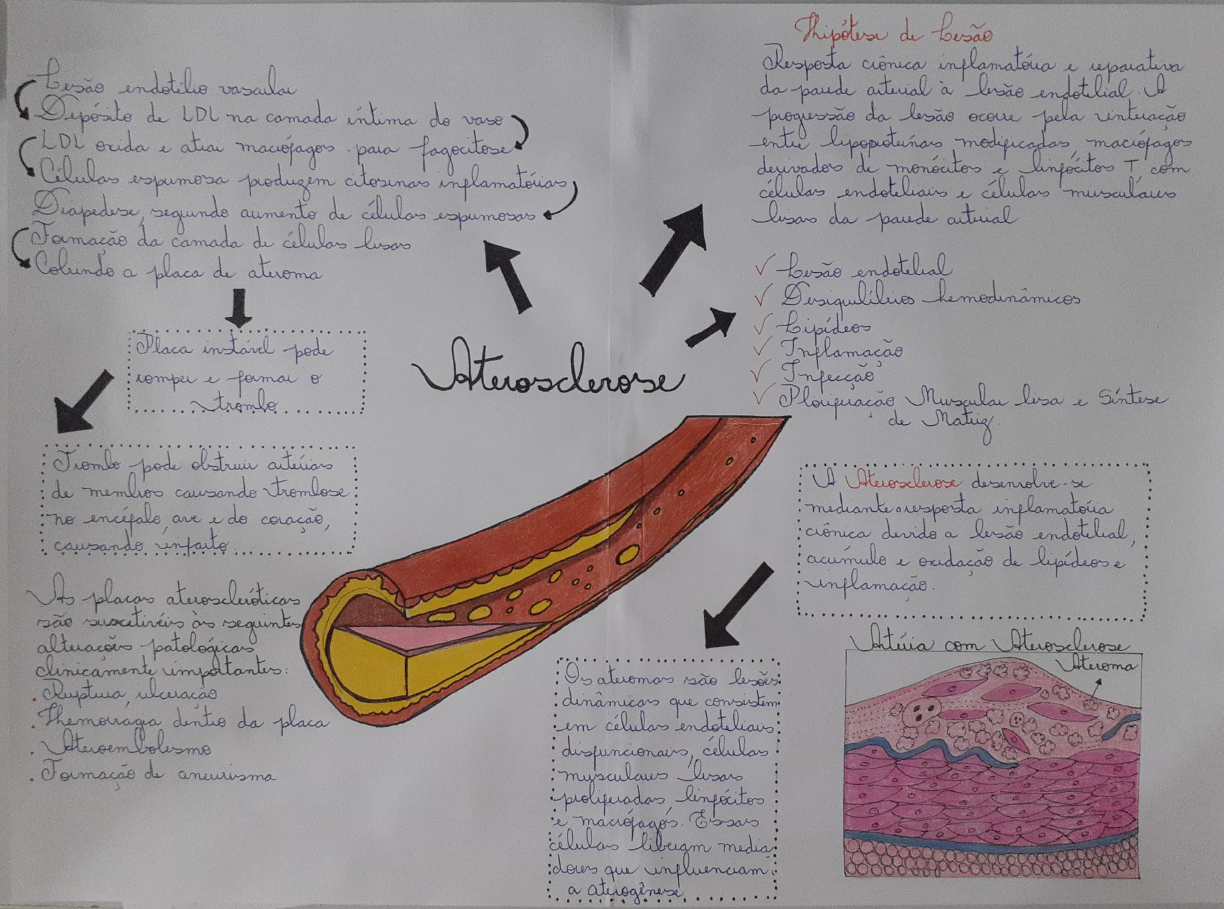 Lesão endotélio vascular
Depósito de LDL na camada íntima do vaso
LDL oxida e atrai macrófagos para fagocitose
Células espumosa produzem citosinas inflamatórias
Diapedese, segundo aumento de células espumosas
Formação da camada de células lisas
Cobrindo a placa de ateroma
Placa instável pode
romper e formar o
trombo
Trombo pode obstruir artérias
de membros causando trombose
no encéfalo, ave e do coração,
causando infarto
As placas ateroscleróticas
são suscetíveis as seguintes
alterações patológicas
clinicamente importantes:
. Ruptura, ulceração
. Hemorragia dentro da placa
. Ateroembolismo
. Formação de aneurisma
Aterosclerose
Hipótese de Lesão
Resposta crônica inflamatória e reparativa
da parede arterial à lesão endotelial. A
progressão da lesão ocorre pela interação
entre lipoproteínas modificadas, macrófagos
derivados de monócitos e linfócitos T com
células endoteliais e células musculares
lisas da parede arterial
✓ Lesão endotelial
✓ Desiquilíbrios hemodinâmicos
✓ Lipídeos
✓ Inflamação
✓ Infecção
✓ Proliferação Muscular lisa e Síntese
de Matriz
A Aterosclerose desenvolve-se
mediante a resposta inflamatória
crônica devido a lesão endotelial,
acúmulo e oxidação de lipídeos e
inflamação.
Os ateromas são lesões
dinâmicas que consistem
em células endoteliais
disfuncionais, células
musculares lisas
proliferadas, linfócitos
e macrófagos. Essas
células liberam media
dores que influenciam
a aterogênese
Artéria com Aterosclerose
Ateroma